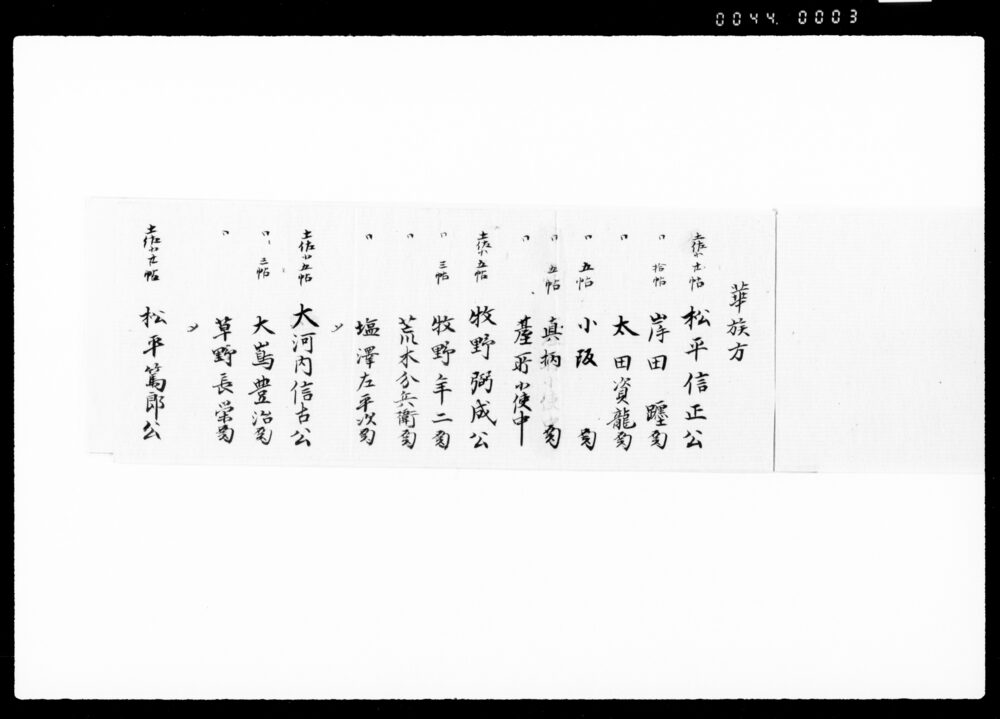 0044. 0003
華族方
土佐小廿帖 松平信正公
〃 拾帖 岸田 殿
〃 太田資龍殿
〃 五帖 小阪 殿
〃 五帖 真柄 殿
〃 台所小使中
土佐小五帖 牧野弼成公
〃 三帖 牧野年二殿
〃 荒木分兵衛殿
〃 塩澤左平次殿
〆
土佐小五帖 大河内信古公
〃 三帖 大嶌豊治殿
〃 草野長栄殿
〆
土佐小廿帖 松平篤郎公